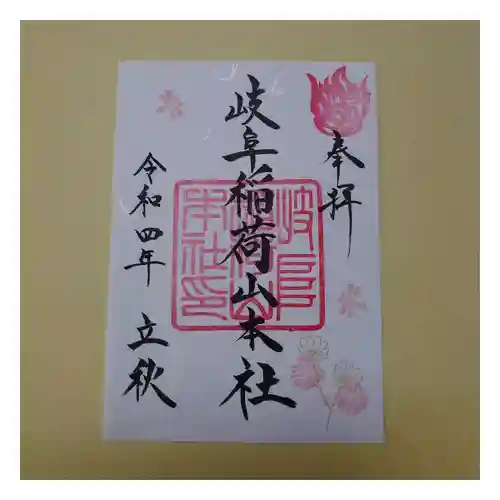 奉拝
岐阜稲荷山本社
岐阜稲荷山本社印
令和四年 立秋